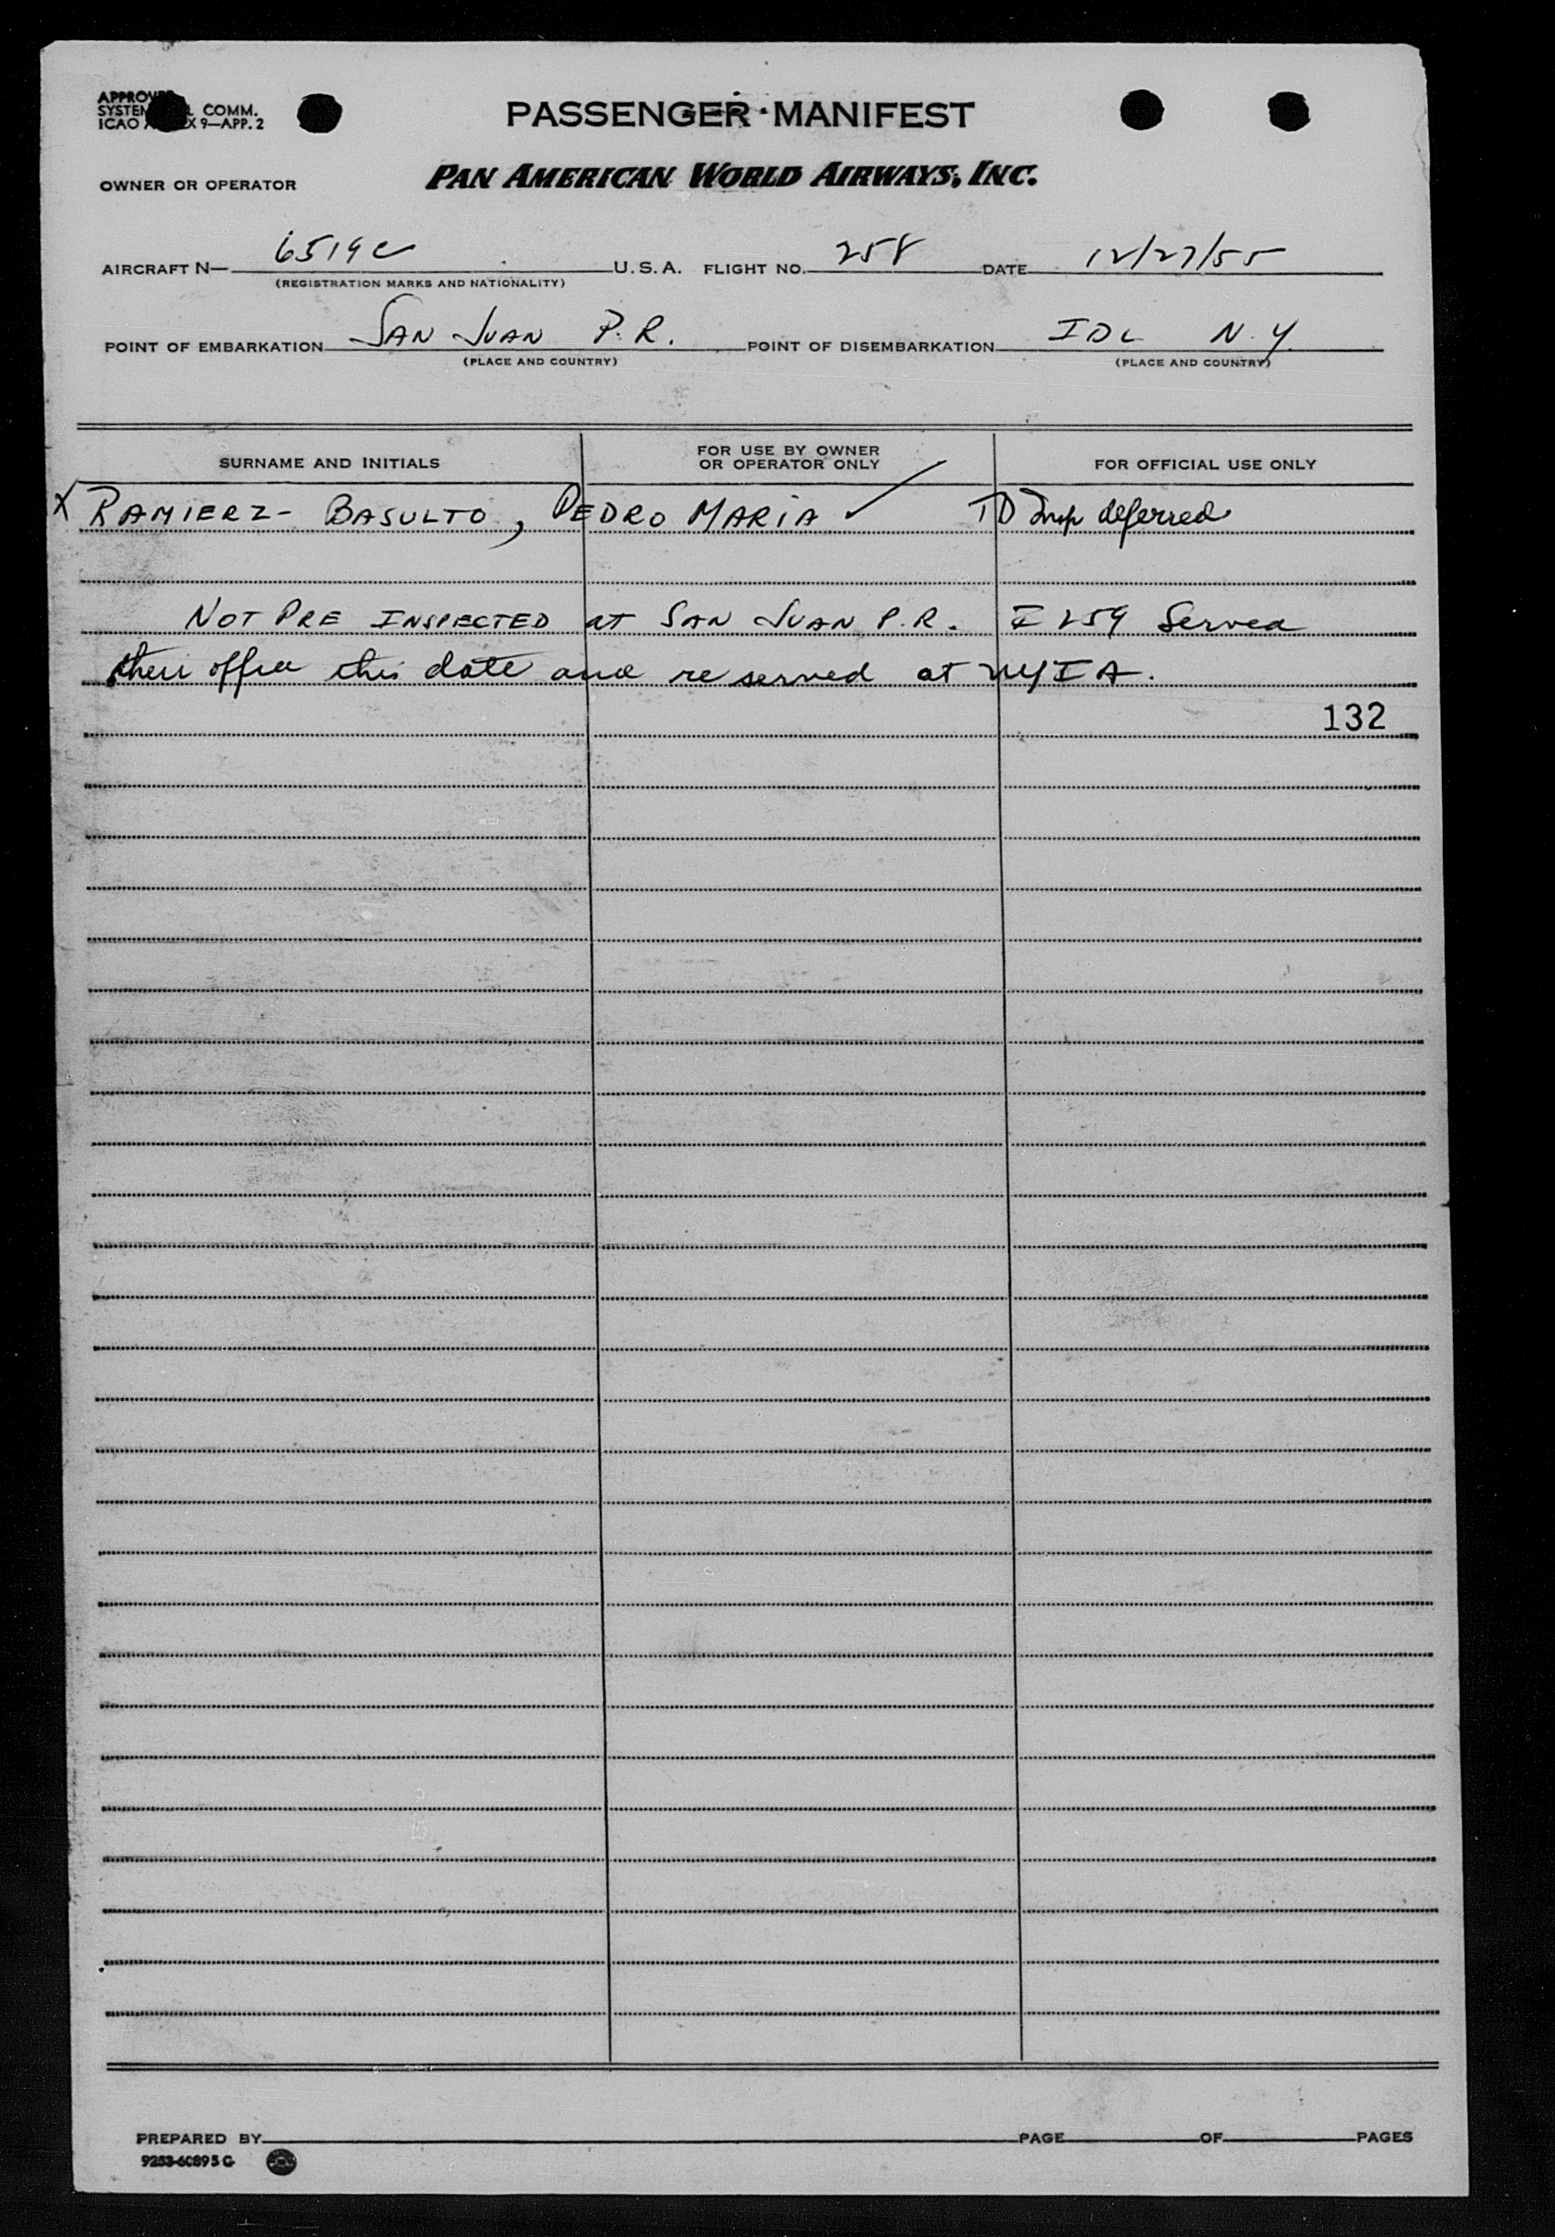 PASSENGER MANIFEST
COMM.
ICAO 9—APP. 2
OWNER OR OPERATOR PAN AMERICAN WORLD AIRWAYS, INC.
AIRCRAFT N— 6519C U.S.A. FLIGHT NO. 258 DATE 12/27/55
(REGISTRATION MARKS AND NATIONALITY)
POINT OF EMBARKATION SAN JUAN P.R. POINT OF DISEMBARKATION IDL N.Y.
(PLACE AND COUNTRY) (PLACE AND COUNTRY)
SURNAME AND INITIALS FOR USE BY OWNER OR OPERATOR ONLY FOR OFFICIAL USE ONLY
X RAMIERZ- BASULTO, PEDRO MARIA ✓ TD Insp deferred
NOT PRE INSPECTED at SAN JUAN P.R. I 259 Served
their office this date and re served at NYIA.
132
PREPARED BY PAGE OF PAGES